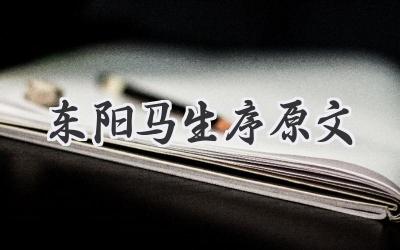 东阳马生序原文